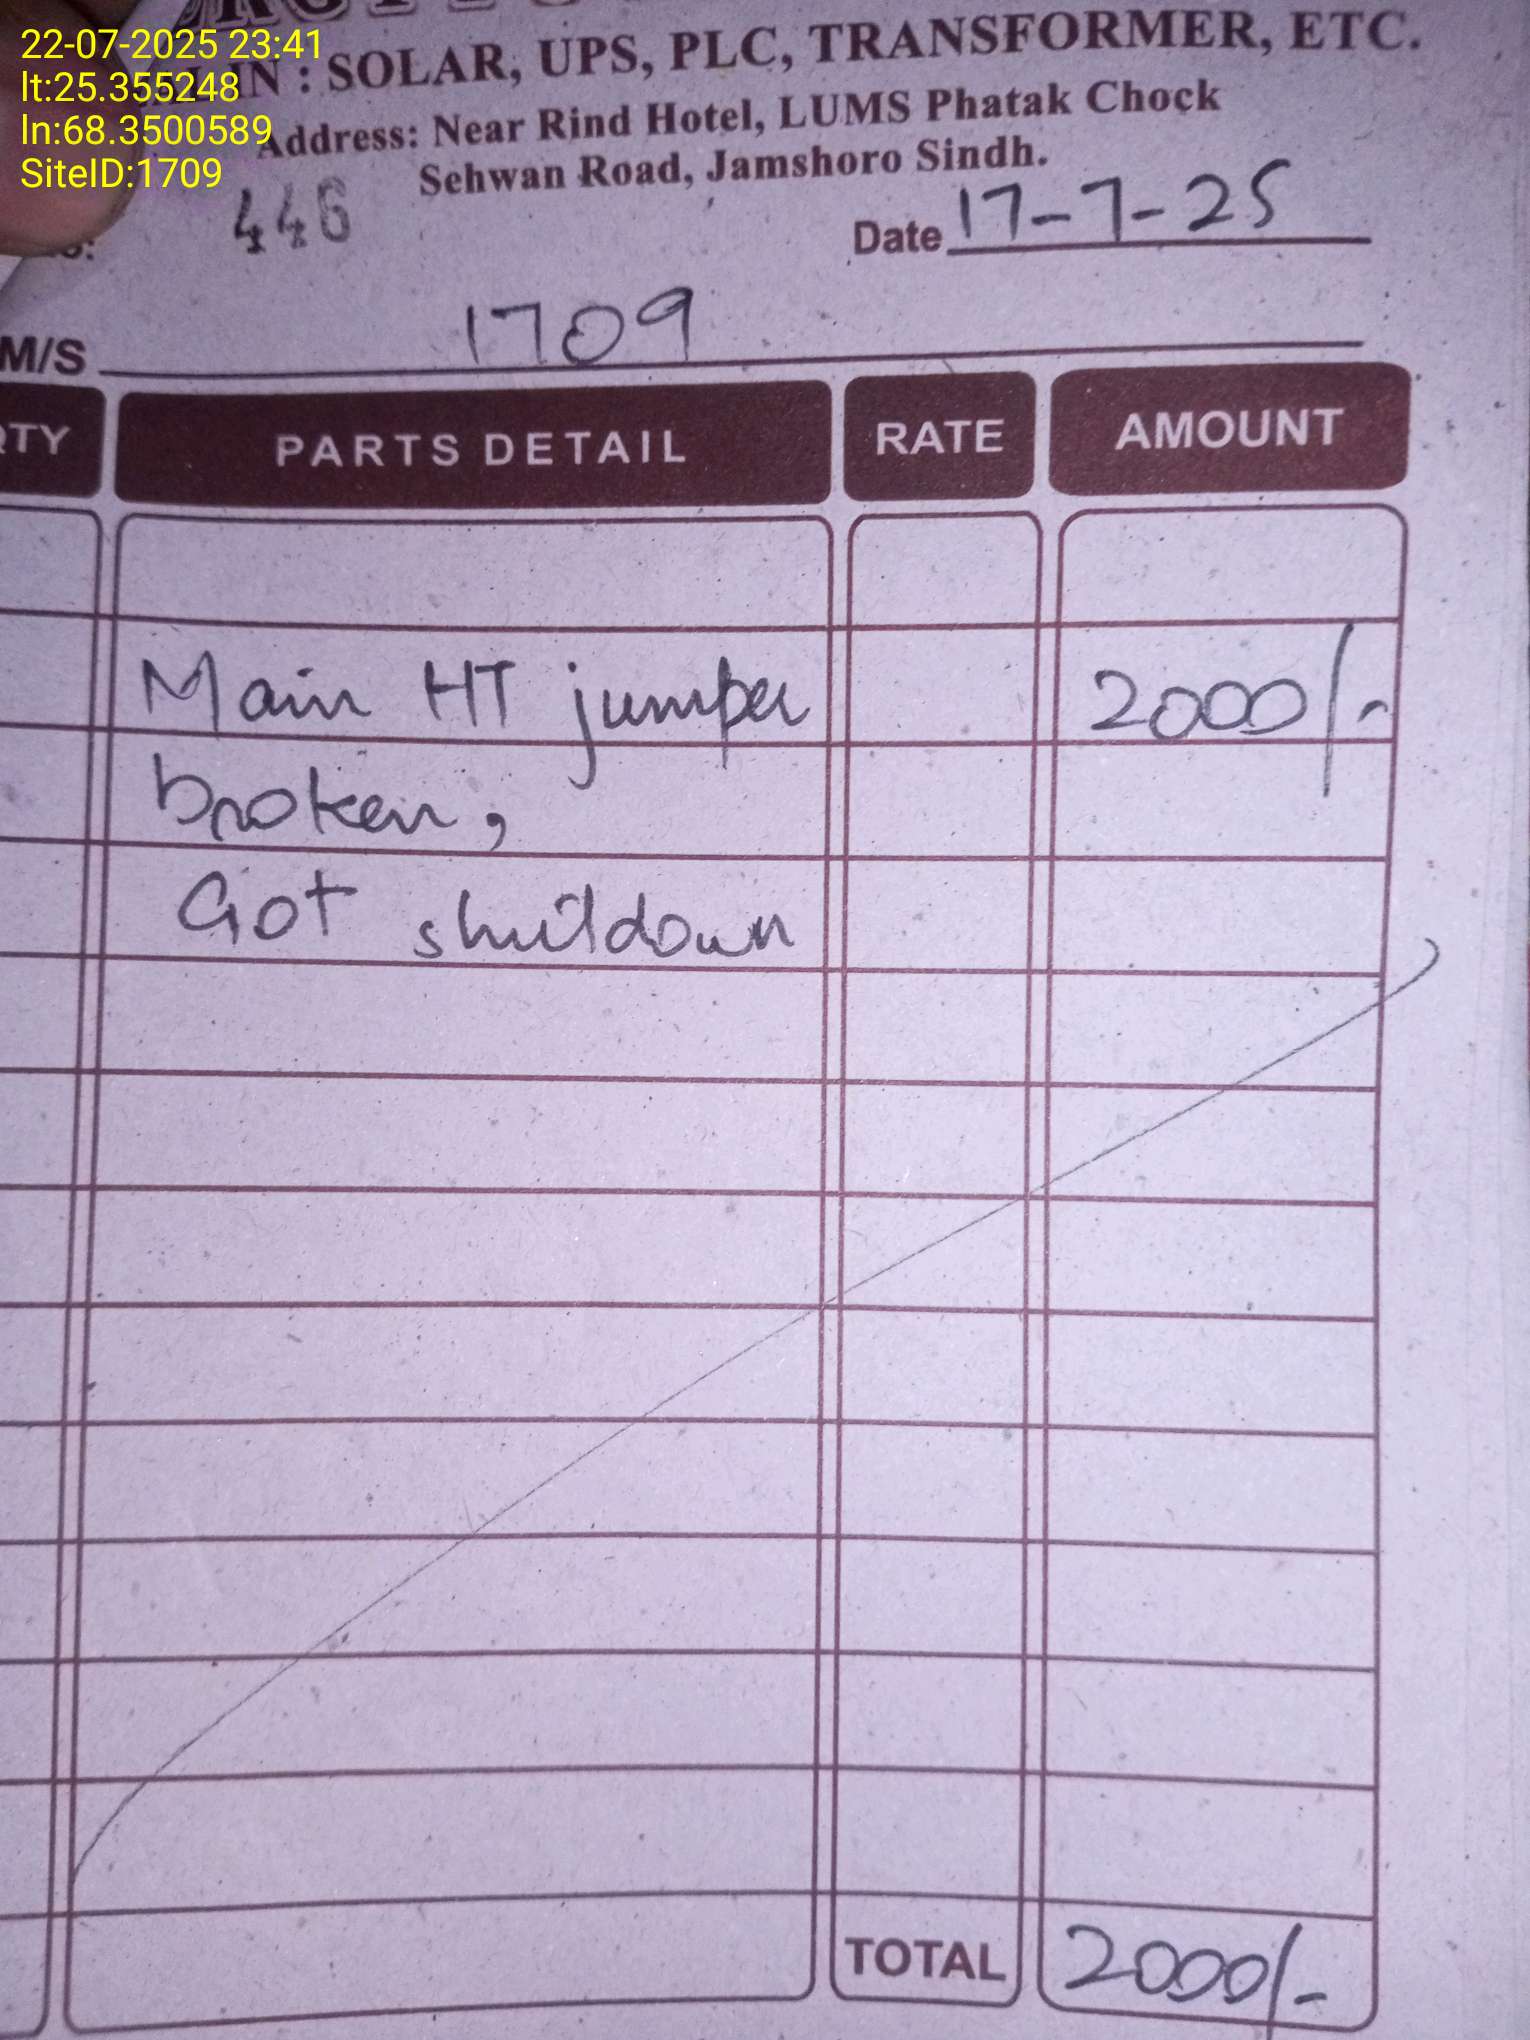 22-07-2025 23:41
lt:25.355248
ln:68.3500589
SiteID:1709
IN : SOLAR, UPS, PLC, TRANSFORMER, ETC.
Address: Near Rind Hotel, LUMS Phatak Chock
Sehwan Road, Jamshoro Sindh.
446
Date 17-7-25
M/S 1709
QTY PARTS DETAIL RATE AMOUNT
Main HT jumper 2000/-
broken,
Got shutdown
TOTAL 2000/-